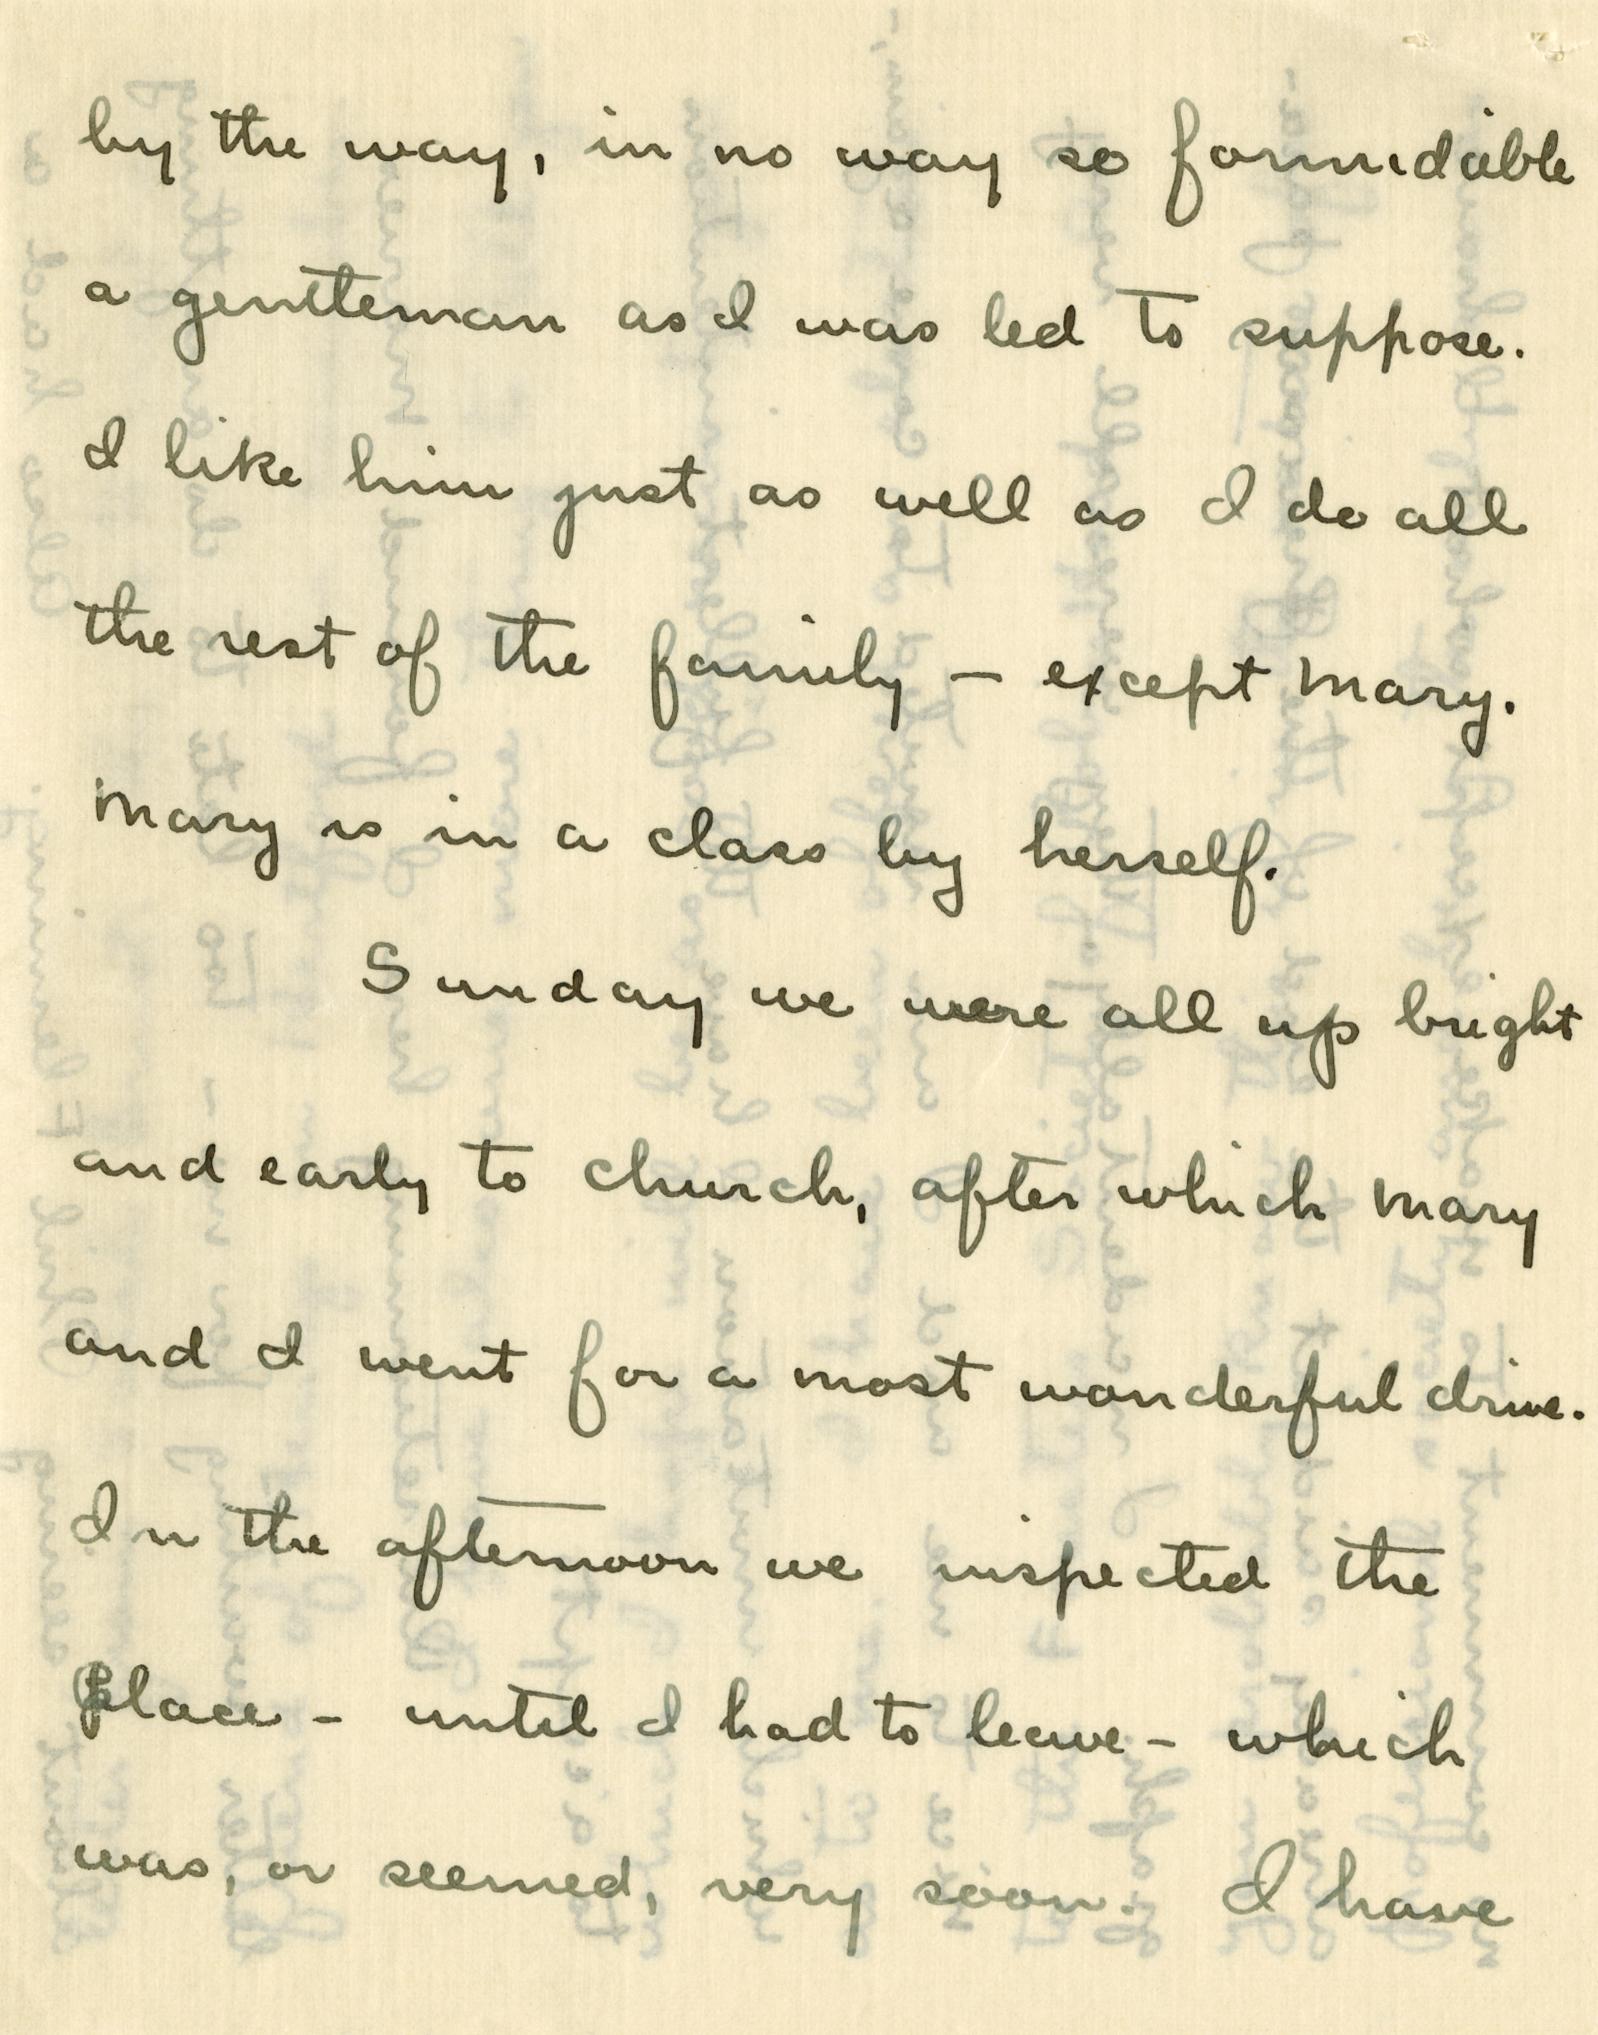 by the way, in no way so formidable
a gentleman as I was led to suppose.
I like him just as well as I do all
the rest of the family — except Mary.
Mary is in a class by herself.
Sunday we were all up bright
and early to church, after which Mary
and I went for a most wonderful drive.
In the afternoon we inspected the
place - until I had to leave - which
was, or seemed, very soon. I have